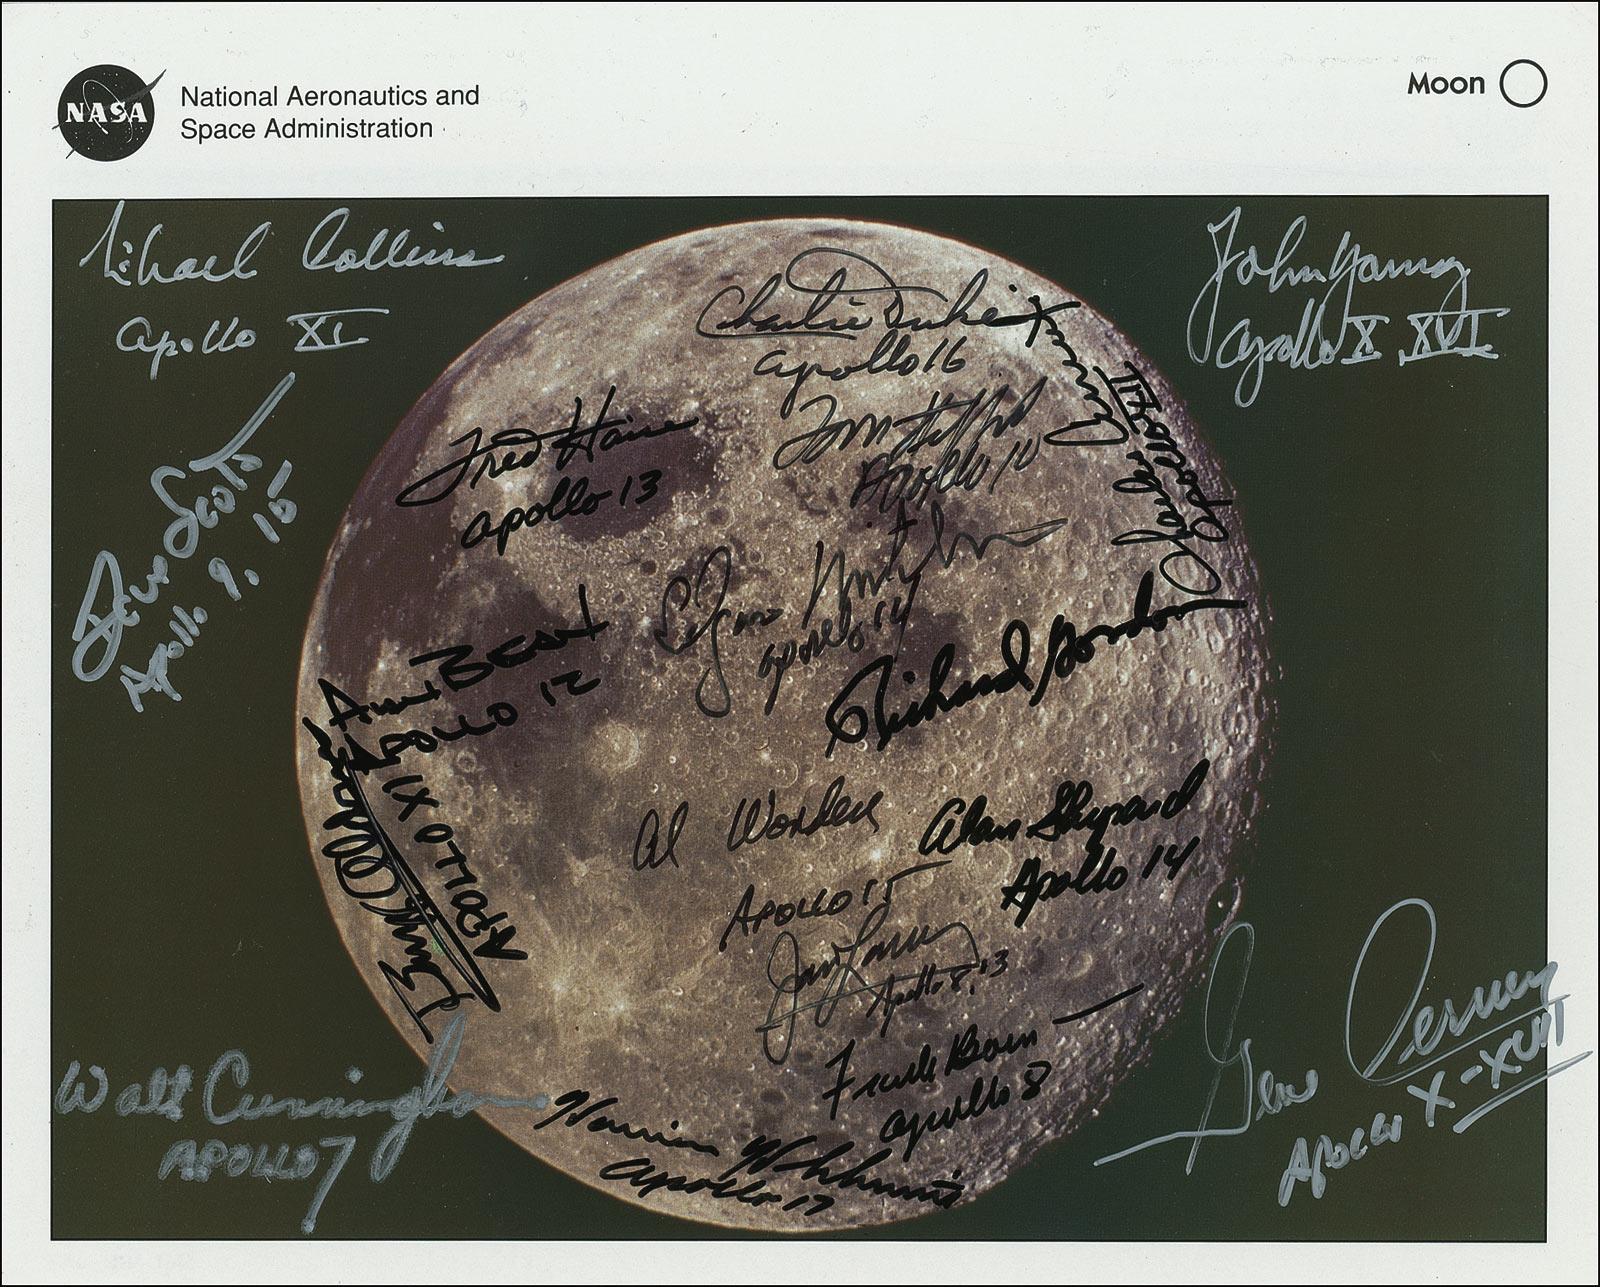 NASA
National Aeronautics and
Space Administration
Moon
Michael Collins
Apollo XI
John Young
Apollo X, XVI
Charlie Duke
Apollo 16
Tom Stafford
Apollo 10
APOLLO XII
Fred Haise
Apollo 13
Dave Scott
Apollo 9, 15
Edgar Mitchell
Apollo 14
Richard Gordon
Alan BEAN
APOLLO 12
Buzz Aldrin
APOLLO XI
Al Worden
APOLLO 15
Alan Shepard
Apollo 14
Jim Lovell
Apollo 8, 13
Frank Borman
Apollo 8
Gene Cernan
APOLLO X-XVII
Walt Cunningham
APOLLO 7
Harrison H Schmitt
Apollo 17